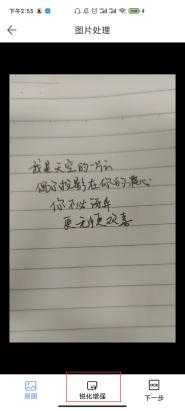 下午2:55
图片处理
我是天空的一片云
偶尔投影在你的波心
你不必讶异
更无须欢喜
原图
锐化增强
下一步